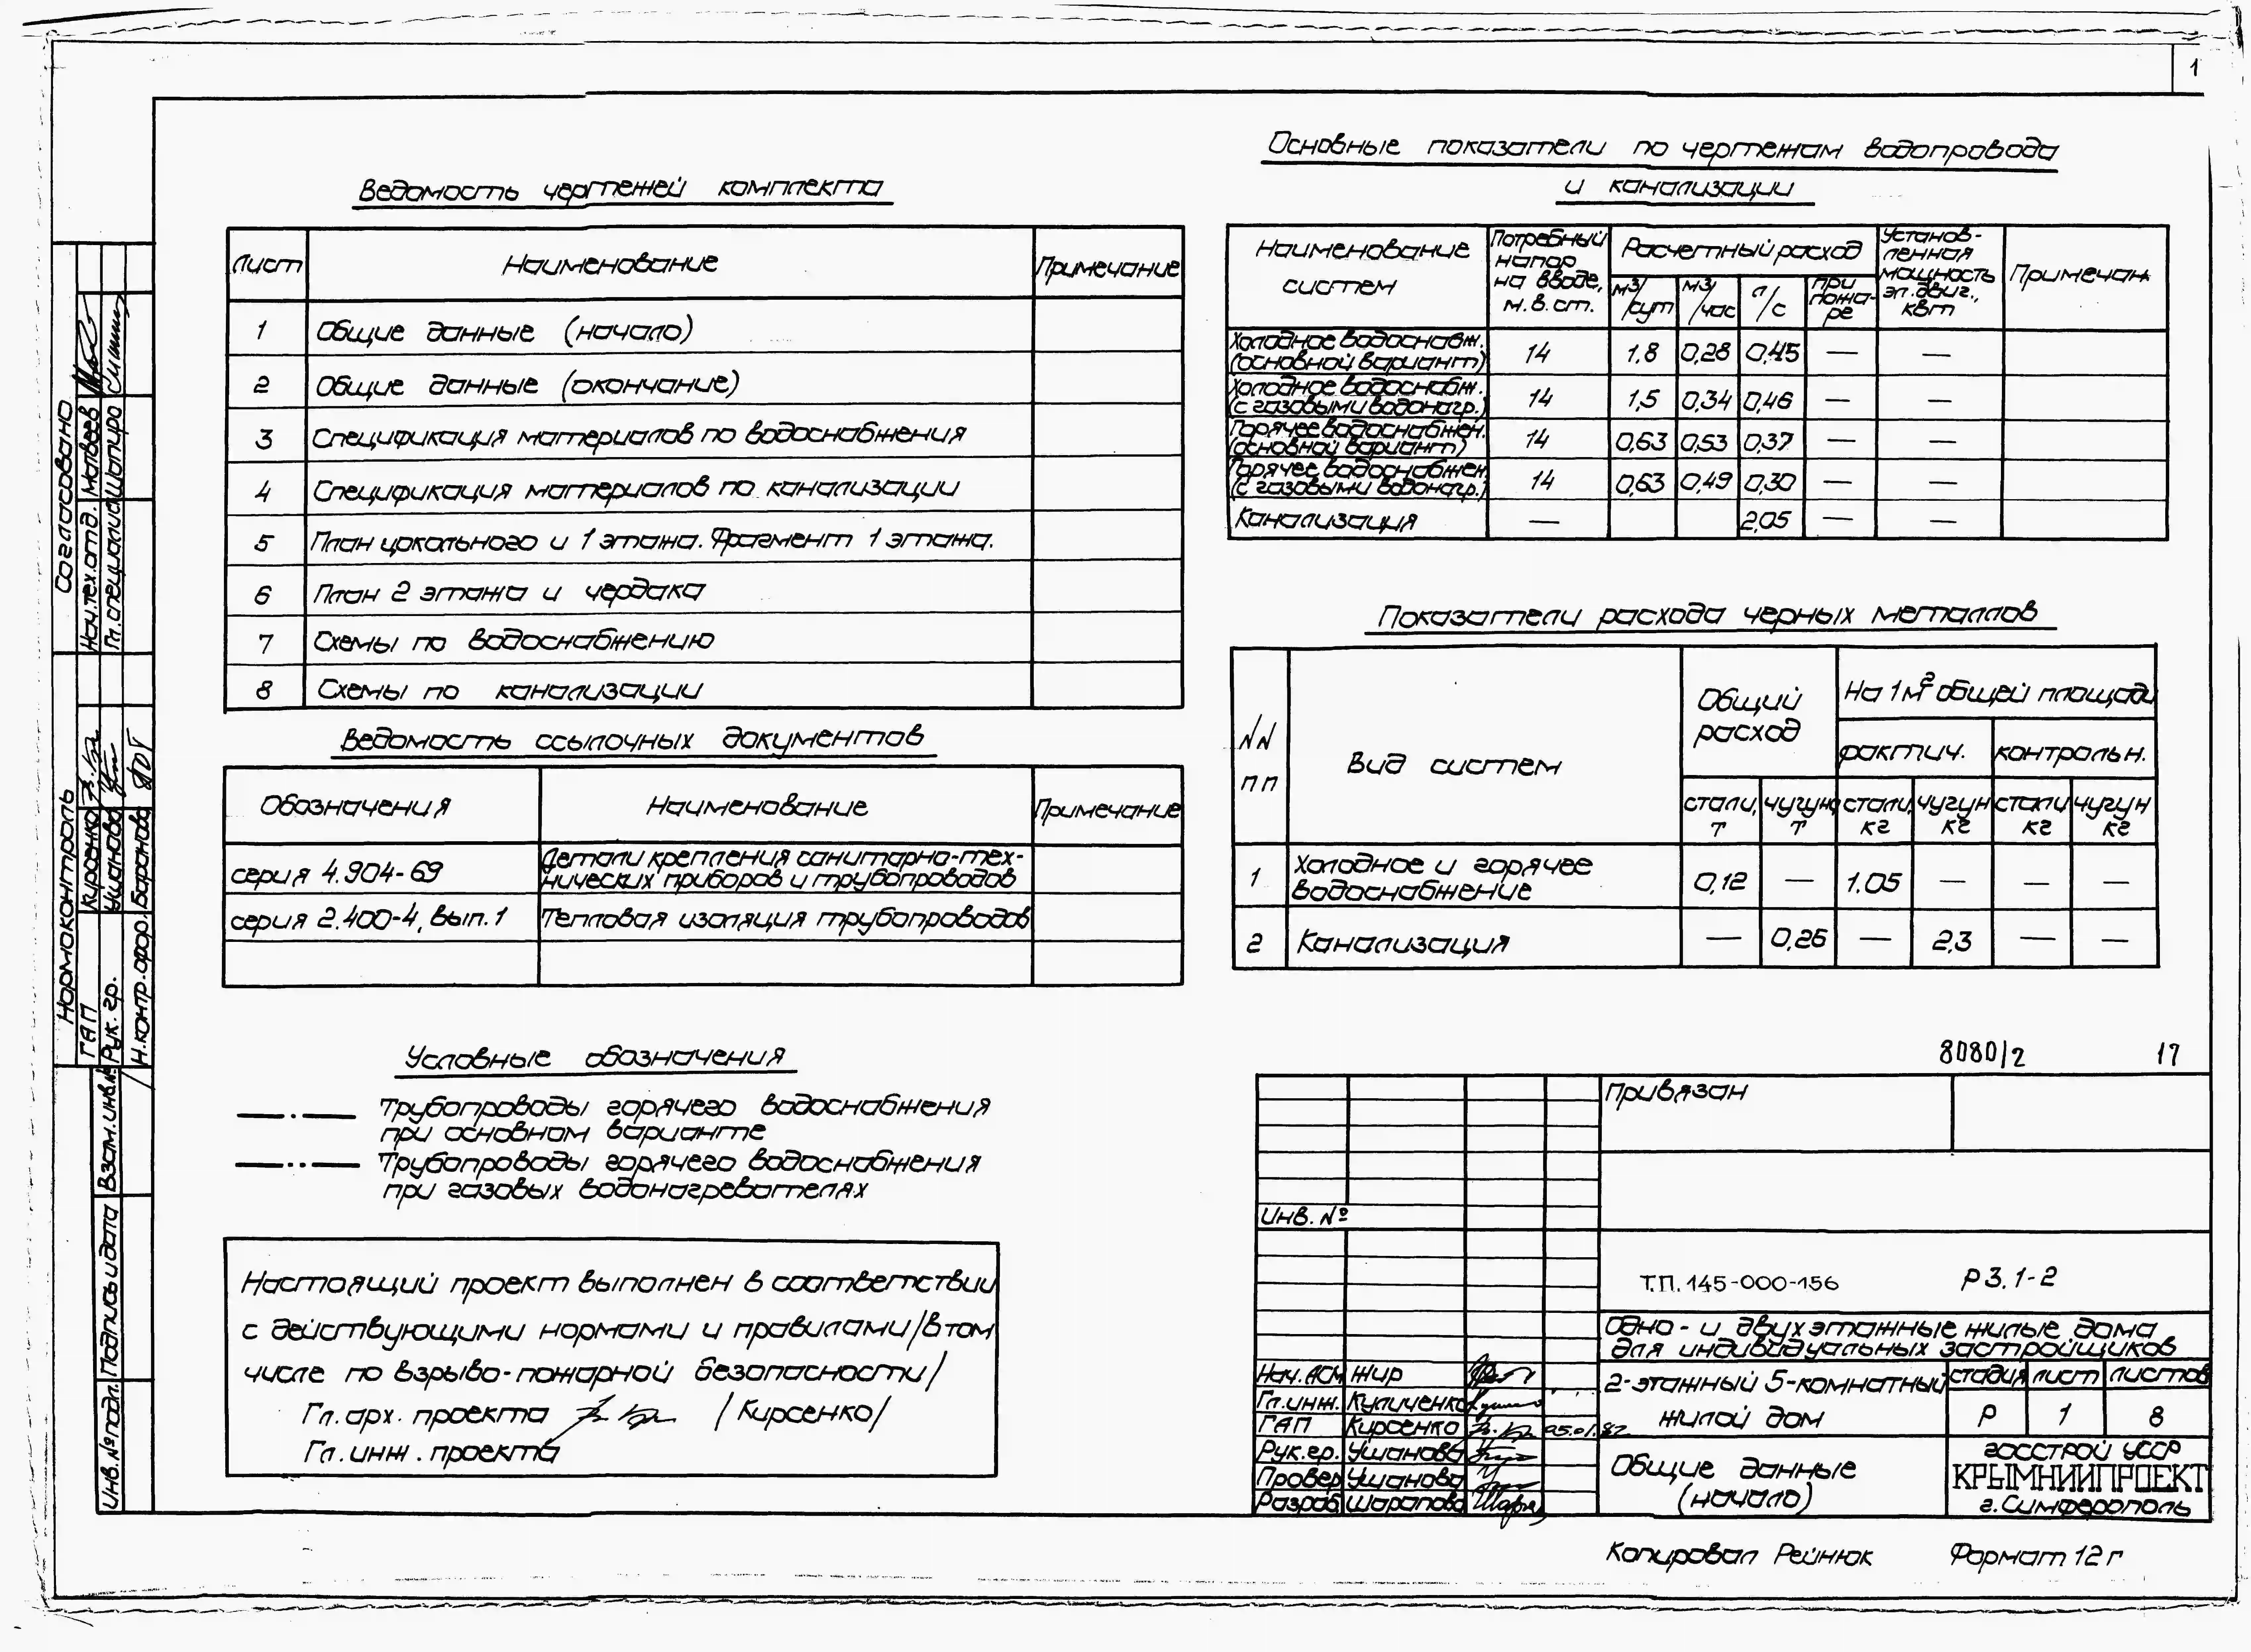 1
Ведомость чертежей комплекта
Лист Наименование Примечание
1 Общие данные (начало)
2 Общие данные (окончание)
3 Спецификация материалов по водоснабжения
4 Спецификация материалов по канализации
5 План цокольного и 1 этажа. Фрагмент 1 этажа.
6 План 2 этажа и чердака
7 Схемы по водоснабжению
8 Схемы по канализации
Ведомость ссылочных документов
Обозначения Наименование Примечание
серия 4.904-69 Детали крепления санитарно-тех-
нических приборов и трубопроводов
серия 2.400-4, вып.1 Тепловая изоляция трубопроводов
Условные обозначения
Трубопроводы горячего водоснабжения
при основном варианте
Трубопроводы горячего водоснабжения
при газовых водонагревателях
Настоящий проект выполнен в соответствии
с действующими нормами и правилами /в том
числе по взрыво-пожарной безопасности/
Гл. арх. проекта /Кирсенко/
Гл. инж. проекта
Основные показатели по чертежам водопровода
и канализации
Наименование систем
Потребный напор на вводе, м.в.ст.
Расчетный расход
м3/сут м3/час л/с при пожа-ре
Установ-
ленная
мощность
эл.двиг.,
квт
Примечан
Холодное водоснабж.
(основной вариант) 14 1,8 0,28 0,45 — —
Холодное водоснабж.
(с газовыми водонагр.) 14 1,5 0,34 0,46 — —
Горячее водоснабжен.
(основной вариант) 14 0,63 0,53 0,37 — —
Горячее водоснабжен
(с газовыми водонагр.) 14 0,63 0,49 0,30 — —
Канализация — 2,05 — —
Показатели расхода черных металлов
NN пп
Вид систем
Общий расход
На 1м2 общей площади
фактич. контрольн.
стали, т чугун, т стали, кг чугун кг стали кг чугун кг
1 Холодное и горячее
водоснабжение 0,12 — 1.05 — — —
2 Канализация — 0,26 — 2,3 — —
8080/2 17
Привязан
Инв. №
Т.П. 145-000-156 Р3.1-2
Одно- и двухэтажные жилые дома
для индивидуальных застройщиков
2-этажный 5-комнатный
жилой дом
стадия лист листов
Р 1 8
Общие данные
(начало)
Госстрой УССР
КРЫМНИИПРОЕКТ
г. Симферополь
Нач. АСМ Жир
Гл.инж. Куличенко
ГАП Кирсенко
Рук.гр. Ушанова
Провер Ушанова
Разраб Шарапова
Копировал Рейнюк Формат 12г
Согласовано
Нач.тех.отд. Матвеев
Гл.специалис Шапиро
Нормоконтроль
ГАП Кирсенко
Рук. гр. Ушанова
Н.контр.офор. Баранова
Взам.инв.№
Подпись и дата
Инв.№подл.